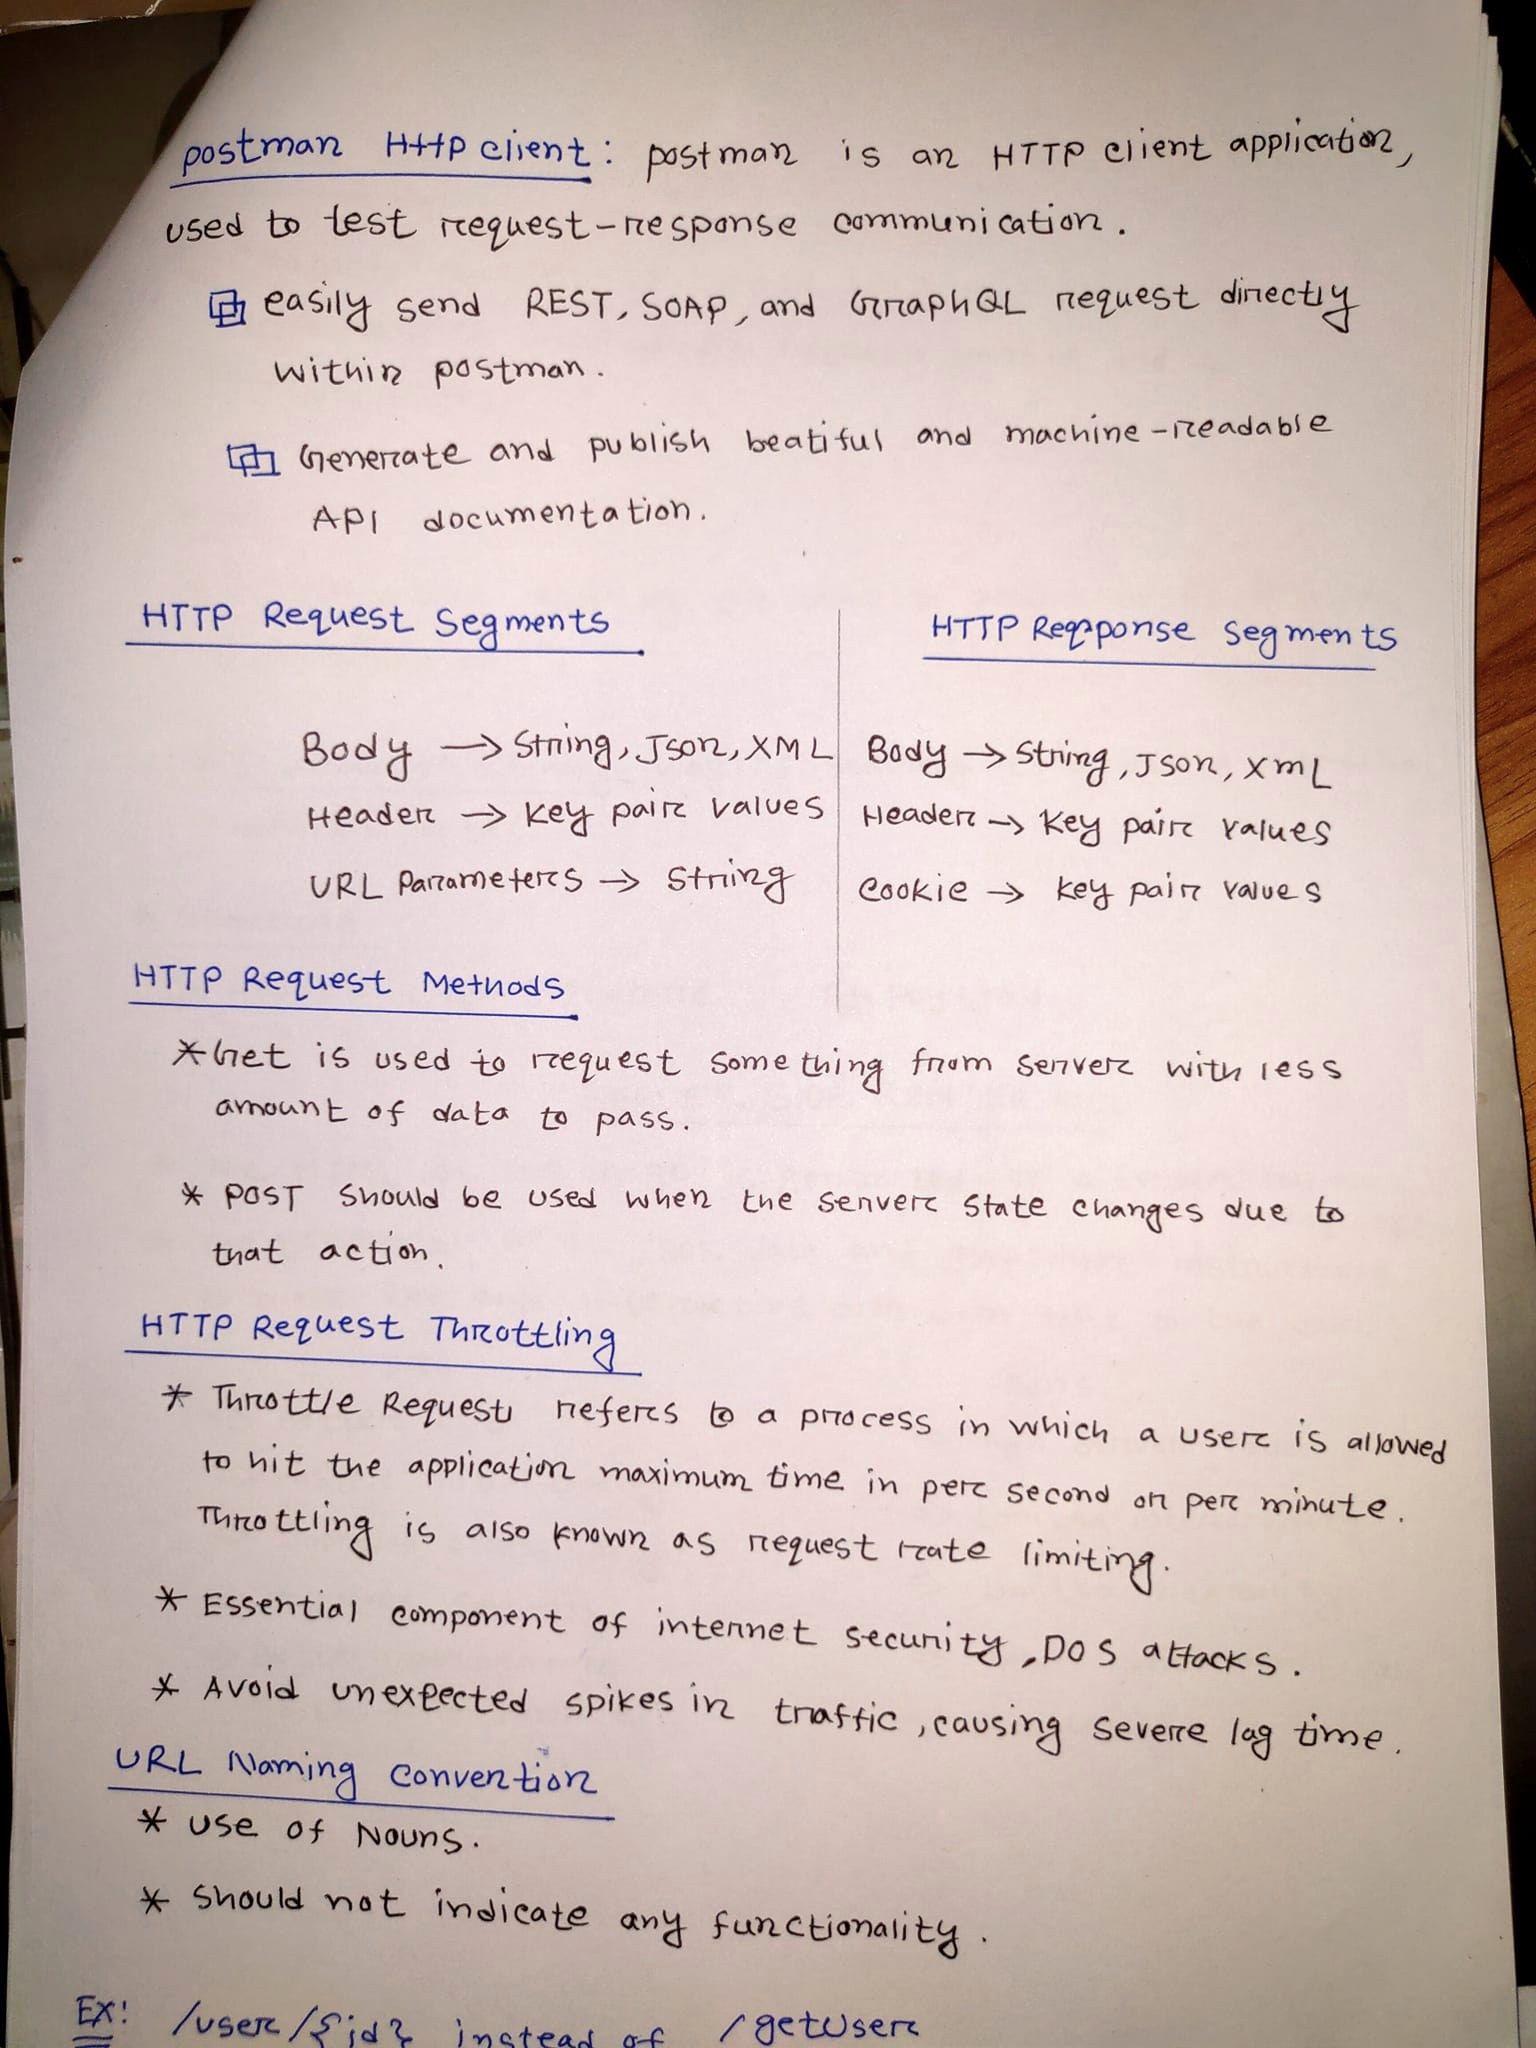 postman Http client: postman is an HTTP client application,
used to test request-response communication.
easily send REST, SOAP, and GraphQL request directly
within postman.
Generate and publish beatiful and machine-readable
API documentation.
HTTP Request Segments
Body → String, Json, XML
Header → Key pair values
URL Parameters → String
HTTP Reqponse Segments
Body → String, Json, XmL
Header → Key pair values
Cookie → Key pair values
HTTP Request Methods
* Get is used to request something from server with less
amount of data to pass.
* POST should be used when the server state changes due to
that action.
HTTP Request Throttling
* Throttle Request refers to a process in which a user is allowed
to hit the application maximum time in per second or per minute.
Throttling is also known as request rate limiting.
* Essential component of internet security, DOS attacks.
* Avoid unexpected spikes in traffic, causing severe lag time.
URL Naming Convention
* Use of Nouns.
* Should not indicate any functionality.
Ex: /user/{id} instead of /getUser